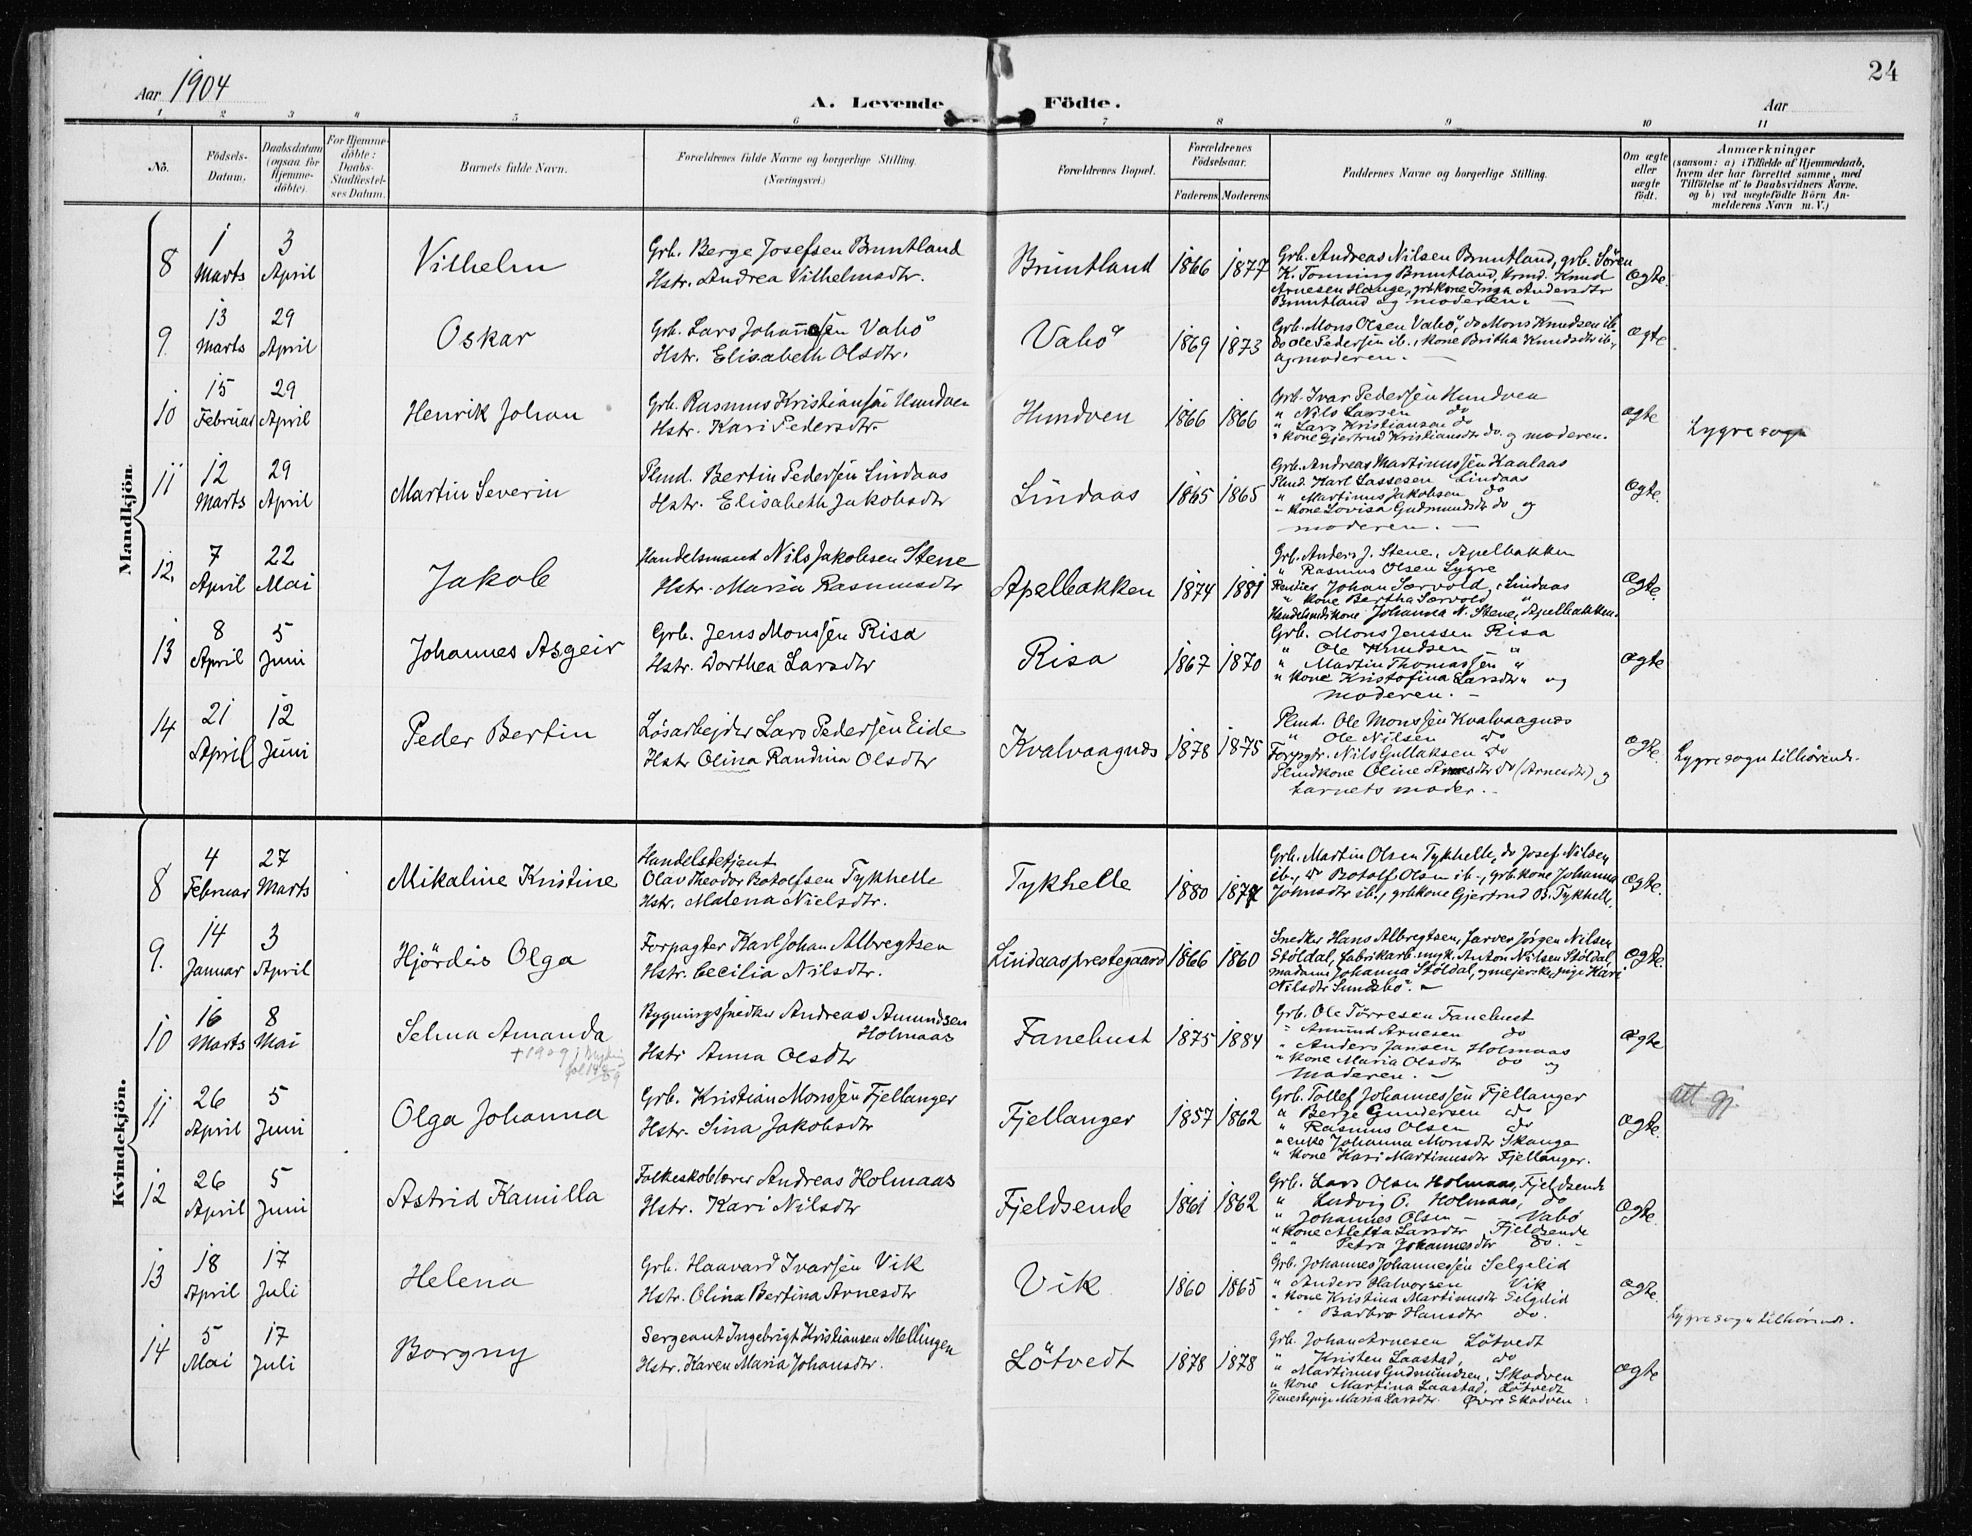 24
Aar 1904
A. Levende Födte.
Aar
1 2 3 4 5 6 7 8 9 10 11
No.
Födsels-Datum.
Daabsdatum (ogsaa for Hjemme-döbte).
For Hjemme-döbte: Daabs-Stadfæstel-ses Datum.
Barnets fulde Navn.
Forældrenes fulde Navne og borgerlige Stilling. (Næringsvei.)
Forældrenes Bopæl.
Forældrenes Födselsaar.
Faderens Moderens
Faddernes Navne og borgerlige Stilling.
Om ægte eller uægte födt.
Anmærkninger
(saasom: a) i Tilfælde af Hjemmedaab,
hvem der har forrettet samme, med
Tilföielse af to Daabsvidners Navne.
og b) ved uægtefödte Börn An-
melderens Navn m. V.)
Mandkjön.
8
1 Marts
3 April
Vilhelm
Grb. Berge Josefsen Bruntland
Hstr. Andrea Vilhelmsdtr.
Bruntland
1866 1877
Grb. Andreas Nilsen Bruntland, grb. Sören
K. Tonning Bruntland, Knud
Arnesen Hauge, grbkone Inga Andersdtr
Bruntland og moderen.
ægte.
9.
13 Marts
29 April
Oskar
Grb. Lars Johannesen Vabö
Hstr. Elisabeth Olsdtr.
Vabö
1869 1873
Grb. Mons Olsen Vabö, do Mons Knudsen ib.
do Ole Pedersen ib., kone Britha Knudsdtr ib.,
og moderen.
ægte
10
15 Februar
29 April
Henrik Johan
Grb. Rasmus Kristiansen Hundven
Hstr. Kari Pedersdtr.
Hundven
1866 1866
Grb. Ivar Pedersen Hundven
" Nils Larsen do
" Lars Kristiansen do
" kone Gjertrud Kristiansdtr do. og moderen.
ægte
Lygre sogn
11
12 Marts
29 April
Martin Severin
Plmd. Bertin Pedersen Lindaas
Hstr. Elisabeth Jakobsdtr
Lindaas
1865 1865
Grb. Andreas Martinussen Kaalaas
Plmd. Karl Lassesen Lindaas
" Martinus Jakobsen do
" kone Lovisa Gudmundsdtr do og
moderen.
ægte.
12.
7 April
22 Mai
Jakob
Handelsmand Nils Jakobsen Stene
Hstr. Maria Rasmusdtr
Apelbakken
1874 1881
Grb. Anders J. Stene, Apelbakken
" Rasmus Olsen Lygre
Johan Særvold, Lindaas
" kone Bertha Særvold "
Handelsmdskone Johanna N. Stene, Apelbakken.
ægte.
13
8 April
5 Juni
Johannes Asgeir
Grb. Jens Monssen Risa
Hstr. Dorthea Larsdtr
Risa
1867 1870
Grb. Mons Jenssen Risa
" Ole Knudsen "
" Martin Thomassen "
" kone Kristofina Larsdtr " og
moderen.
ægte
14
21 April
12 Juni
Peder Bertin
Løsarbejder Lars Pedersen Eide
Hstr Olina Randina Olsdtr
Kvalvaagnæs
1878 1875
Plmd. Ole Monssen Kvalvaagnæs
" Ole Nilsen do
Forpgtr. Nils Gullaksen do
Plmdkone Oline Arnesdtr do (Arnesdtr) og
barnets moder.
ægte.
Lygre sogn tilhørende.
Kvindekjön.
8
4 Februar
27 Marts
Mikaline Kristine
Handelsbetjent
Olav Theodor Botolfsen Tykhelle
Hstr. Malena Nielsdtr.
Tykhelle
1880 1877
Grb. Martin Olsen Tykhelle, do Josef Nilsen
ib., do Botolf Olsen ib., grbkone Johanna
Johnsdtr ib., grbkone Gjertrud B. Tykhelle.
ægte.
9.
14 Januar
3 April
Hjördis Olga
Forpagter Karl Johan Albregtsen
Hstr. Cecilia Nilsdtr.
Lindaasprestegaard
1866 1860
Snedker Hans Albregtsen, Farver Jørgen Nilsen
Støldal, fabrikarb. Anton Nilsen Støldal,
madame Johanna Støldal, og mejerske pige Kari
Nilsdtr Sundsbö.
ægte.
10
16 Marts
8 Mai
Selma Amanda
+ 1909
Bygningssnedker Andreas Amundsen
Holmaas
Hstr Anna Olsdtr
Fanebust
1875 1884
Grb. Ole Torresen Fanebust
" Amund Arnesen do
" Anders Jansen Holmaas
" kone Maria Olsdtr do og
moderen.
ægte
11
26 April
5 Juni
Olga Johanna
Grb. Kristian Monssen Fjellanger
Hstr. Sina Jakobsdtr
Fjellanger
1857 1862
Grb. Tollef Johannessen Fjellanger
" Berge Gundersen do
" Rasmus Olsen do
" enke Johanna Monsdtr Skauge
" kone Kari Martinusdtr Fjellanger.
ægte.
att gj.
12
26 April
5 Juni
Astrid Kamilla
Folkeskolelærer Andreas Holmaas
Hstr. Kari Nilsdtr
Fjeldsende
1861 1862
Grb. Lars Olsen Holmaas, Fjeldsende
" Ludvig O. Holmaas, do
" Johannes Olsen — Vabö
" kone Metta Larsdtr Fjeldsende
" " Petra Johannesdtr do.
ægte.
13
18 April
17 Juli
Helena
Grb. Haavard Ivarsen Vik
Hstr. Olina Bertina Arnesdtr
Vik
1860 1865
Grb. Johannes Johannessen Selgelid
" Anders Halvorsen Vik
" kone Kristina Martinusdtr Selgelid
" " Barbro Hansdtr do.
ægte.
Lygre sogn tilhørende.
14
5 Mai
17 Juli
Borgny
Sergeant Ingebrigt Kristiansen Mellingen
Hstr. Karen Maria Johansdtr.
Lötvedt
1878 1878
Grb. Johan Arnesen Lötvedt
" Kristen Laastad, do
" Martinus Gudmundsen, Skodven
" kone Martina Laastad, Lötvedt
Tjenestepige Maria Larsdtr. Øvre Skodven
ægte